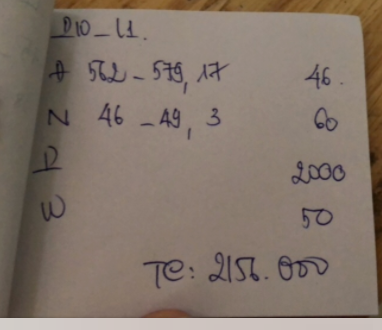 D10 - 11.
Đ 562 - 579, 17 46.
N 46 - 49, 3 60
D 2000
W 50
TC: 2156.000